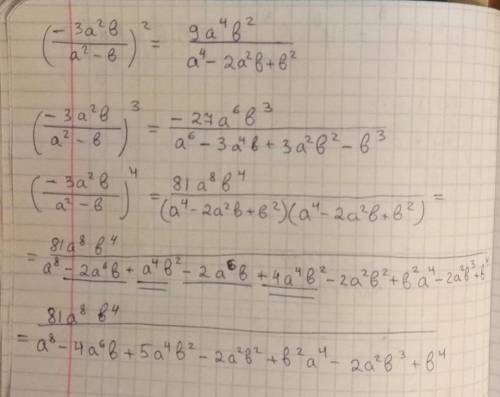 (-3a²в / a²-в)² = 9a⁴в² / a⁴-2a²в+в²
(-3a²в / a²-в)³ = -27a⁶в³ / a⁶-3a⁴в+3a²в²-в³
(-3a²в / a²-в)⁴ = 81a⁸в⁴ / (a⁴-2a²в+в²)(a⁴-2a²в+в²) =
= 81a⁸в⁴ / a⁸-2a⁶в+a⁴в²-2a⁶в+4a⁴в²-2a²в²+в²a⁴-2a²в³+в⁴
= 81a⁸в⁴ / a⁸-4a⁶в+5a⁴в²-2a²в²+в²a⁴-2a²в³+в⁴